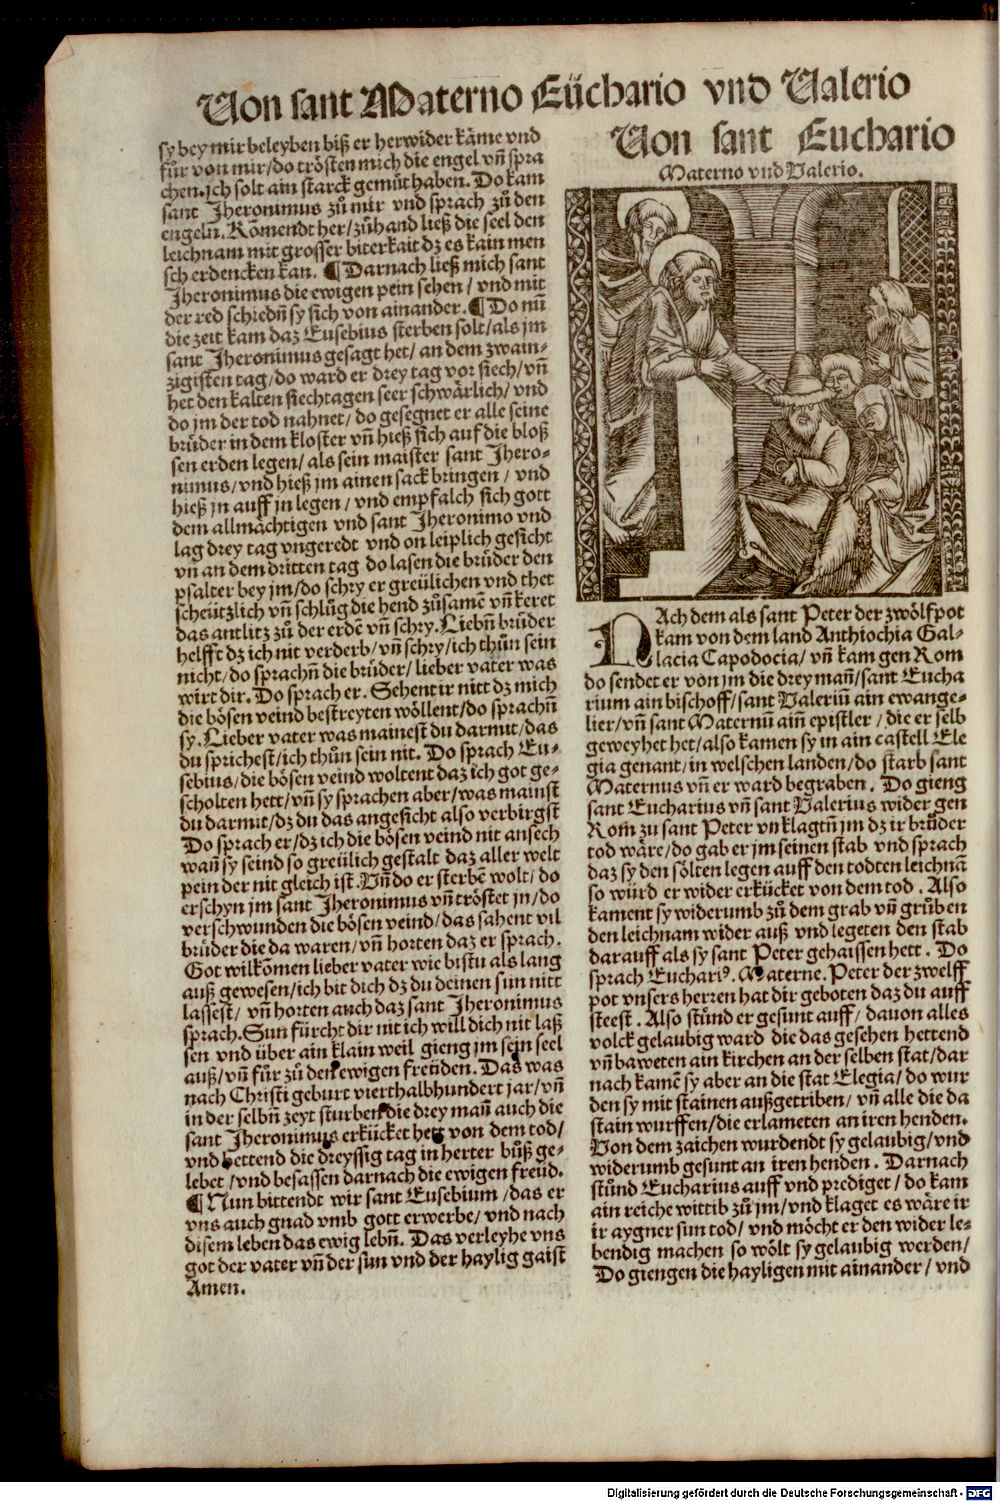 Von sant Materno Eüchario vnd Valerio
sy bey mir beleyben biß er herwider käme vnd
fůr von mir/do trösten mich die engel vñ spra
chen.ich solt ain starck gemůt haben. Do kam
sant Jheronimus zů mir vnd sprach zů den
engeln. Komendt her/zůhand ließ die seel den
leichnam mit grosser biterkait dz es kain men
sch erdencken kan. ¶ Darnach ließ mich sant
Jheronimus die ewigen pein sehen/ vnd mit
der red schiedñ sy sich von ainander. ¶ Do nũ
die zeit kam daz Eusebius sterben solt/als jm
sant Jheronimus gesagt het/ an dem zwain-
zigisten tag/do ward er drey tag vor siech/vñ
het den kalten siechtagen seer schwärlich/ vnd
do jm der tod nahnet/ do gesegnet er alle seine
brůder in dem kloster vñ hieß sich auf die bloß
sen erden legen/ als sein maister sant Jhero-
nimus/vnd hieß jm ainen sack bringen / vnd
hieß jn auff jn legen / vnd empfalch sich gott
dem allmächtigen vnd sant Jheronimo vnd
lag drey tag vngeredt vnd on leiplich gesicht
vñ an dem dritten tag do lasen die brůder den
psalter bey jm/do schry er greülichen vnd thet
scheützlich vñ schlůg die hend zůsamẽ vñ keret
das antlitz zů der erdẽ vñ schry. Liebñ brůder
helfft dz ich nit verderb/vñ schry/ich thůn sein
nicht/do sprachñ die brůder/ lieber vater was
wirt dir. Do sprach er. Sehent ir nitt dz mich
die bösen veind bestreyten wöllent/do sprachñ
sy. Lieber vater was mainest du darmit/das
du sprichest/ich thůn sein nit. Do sprach Eu-
sebius/die bösen veind woltent daz ich got ge-
scholten hett/vñ sy sprachen aber/was mainst
du darmit/dz du das angesicht also verbirgst
Do sprach er/dz ich die bösen veind nit ansech
wañ sy seind so greülich gestalt daz aller welt
pein der nit gleich ist. Vñ do er sterbẽ wolt/ do
erschyn jm sant Jheronimus vñ tröstet jn/do
verschwunden die bösen veind/das sahent vil
brůder die da waren/vñ horten daz er sprach.
Got wilkõmen lieber vater wie bistu als lang
auß gewesen/ich bit dich dz du deinen sun nitt
lassest/ vñ horten auch daz sant Jheronimus
sprach. Sun fürcht dir nit ich will dich nit laß
sen vnd über ain klain weil gieng jm sein seel
auß/vñ fůr zů den ewigen freüden. Das was
nach Christi geburt vierthalbhundert jar/vñ
in der selbñ zeyt sturben die drey mañ auch die
sant Jheronimus erkücket hett von dem tod/
vnd hettend die dreyssig tag in herter bůß ge-
lebet /vnd besassen darnach die ewigen freud.
¶ Nun bittendt wir sant Eusebium /das er
vns auch gnad vmb gott erwerbe/ vnd nach
disem leben das ewig lebñ. Das verleyhe vns
got der vater vñ der sun vnd der haylig gaist
Amen.
Von sant Euchario
Materno vnd Valerio.
NAch dem als sant Peter der zwölfpot
kam von dem land Anthiochia Gal-
lacia Capodocia/ vñ kam gen Rom
do sendet er von jm die drey mañ/sant Eucha
rium ain bischoff/sant Valeriũ ain ewange-
lier/vñ sant Maternũ aiñ epistler / die er selb
geweyhet het/also kamen sy in ain castell Ele
gia genant/in welschen landen/do starb sant
Maternus vñ er ward begraben. Do gieng
sant Eucharius vñ sant Valerius wider gen
Rom zu sant Peter vñ klagtñ jm dz ir brůder
tod wäre/do gab er jm seinen stab vnd sprach
daz sy den sölten legen auff den todten leichnã
so würd er wider erkücket von dem tod. Also
kament sy widerumb zů dem grab vñ grůben
den leichnam wider auß vnd legeten den stab
darauff als sy sant Peter gehaissen hett. Do
sprach Euchariꝰ. Materne. Peter der zwelff
pot vnsers herren hat dir geboten daz du auff
steest. Also stůnd er gesunt auff/ dauon alles
volck gelaubig ward die das gesehen hettend
vñ baweten ain kirchen an der selben stat/dar
nach kamẽ sy aber an die stat Elegia/ do wur
den sy mit stainen außgetriben/ vñ alle die da
stain wurffen/die erlameten an iren henden.
Von dem zaichen wurdendt sy gelaubig/vnd
widerumb gesunt an iren henden. Darnach
stůnd Eucharius auff vnd prediget/ do kam
ain reiche wittib zů jm/vnd klaget es wäre ir
ir aygner sun tod/ vnd möcht er den wider le-
bendig machen so wölt sy gelaubig werden/
Do giengen die hayligen mit ainander/ vnd
Digitalisierung gefördert durch die Deutsche Forschungsgemeinschaft - DFG